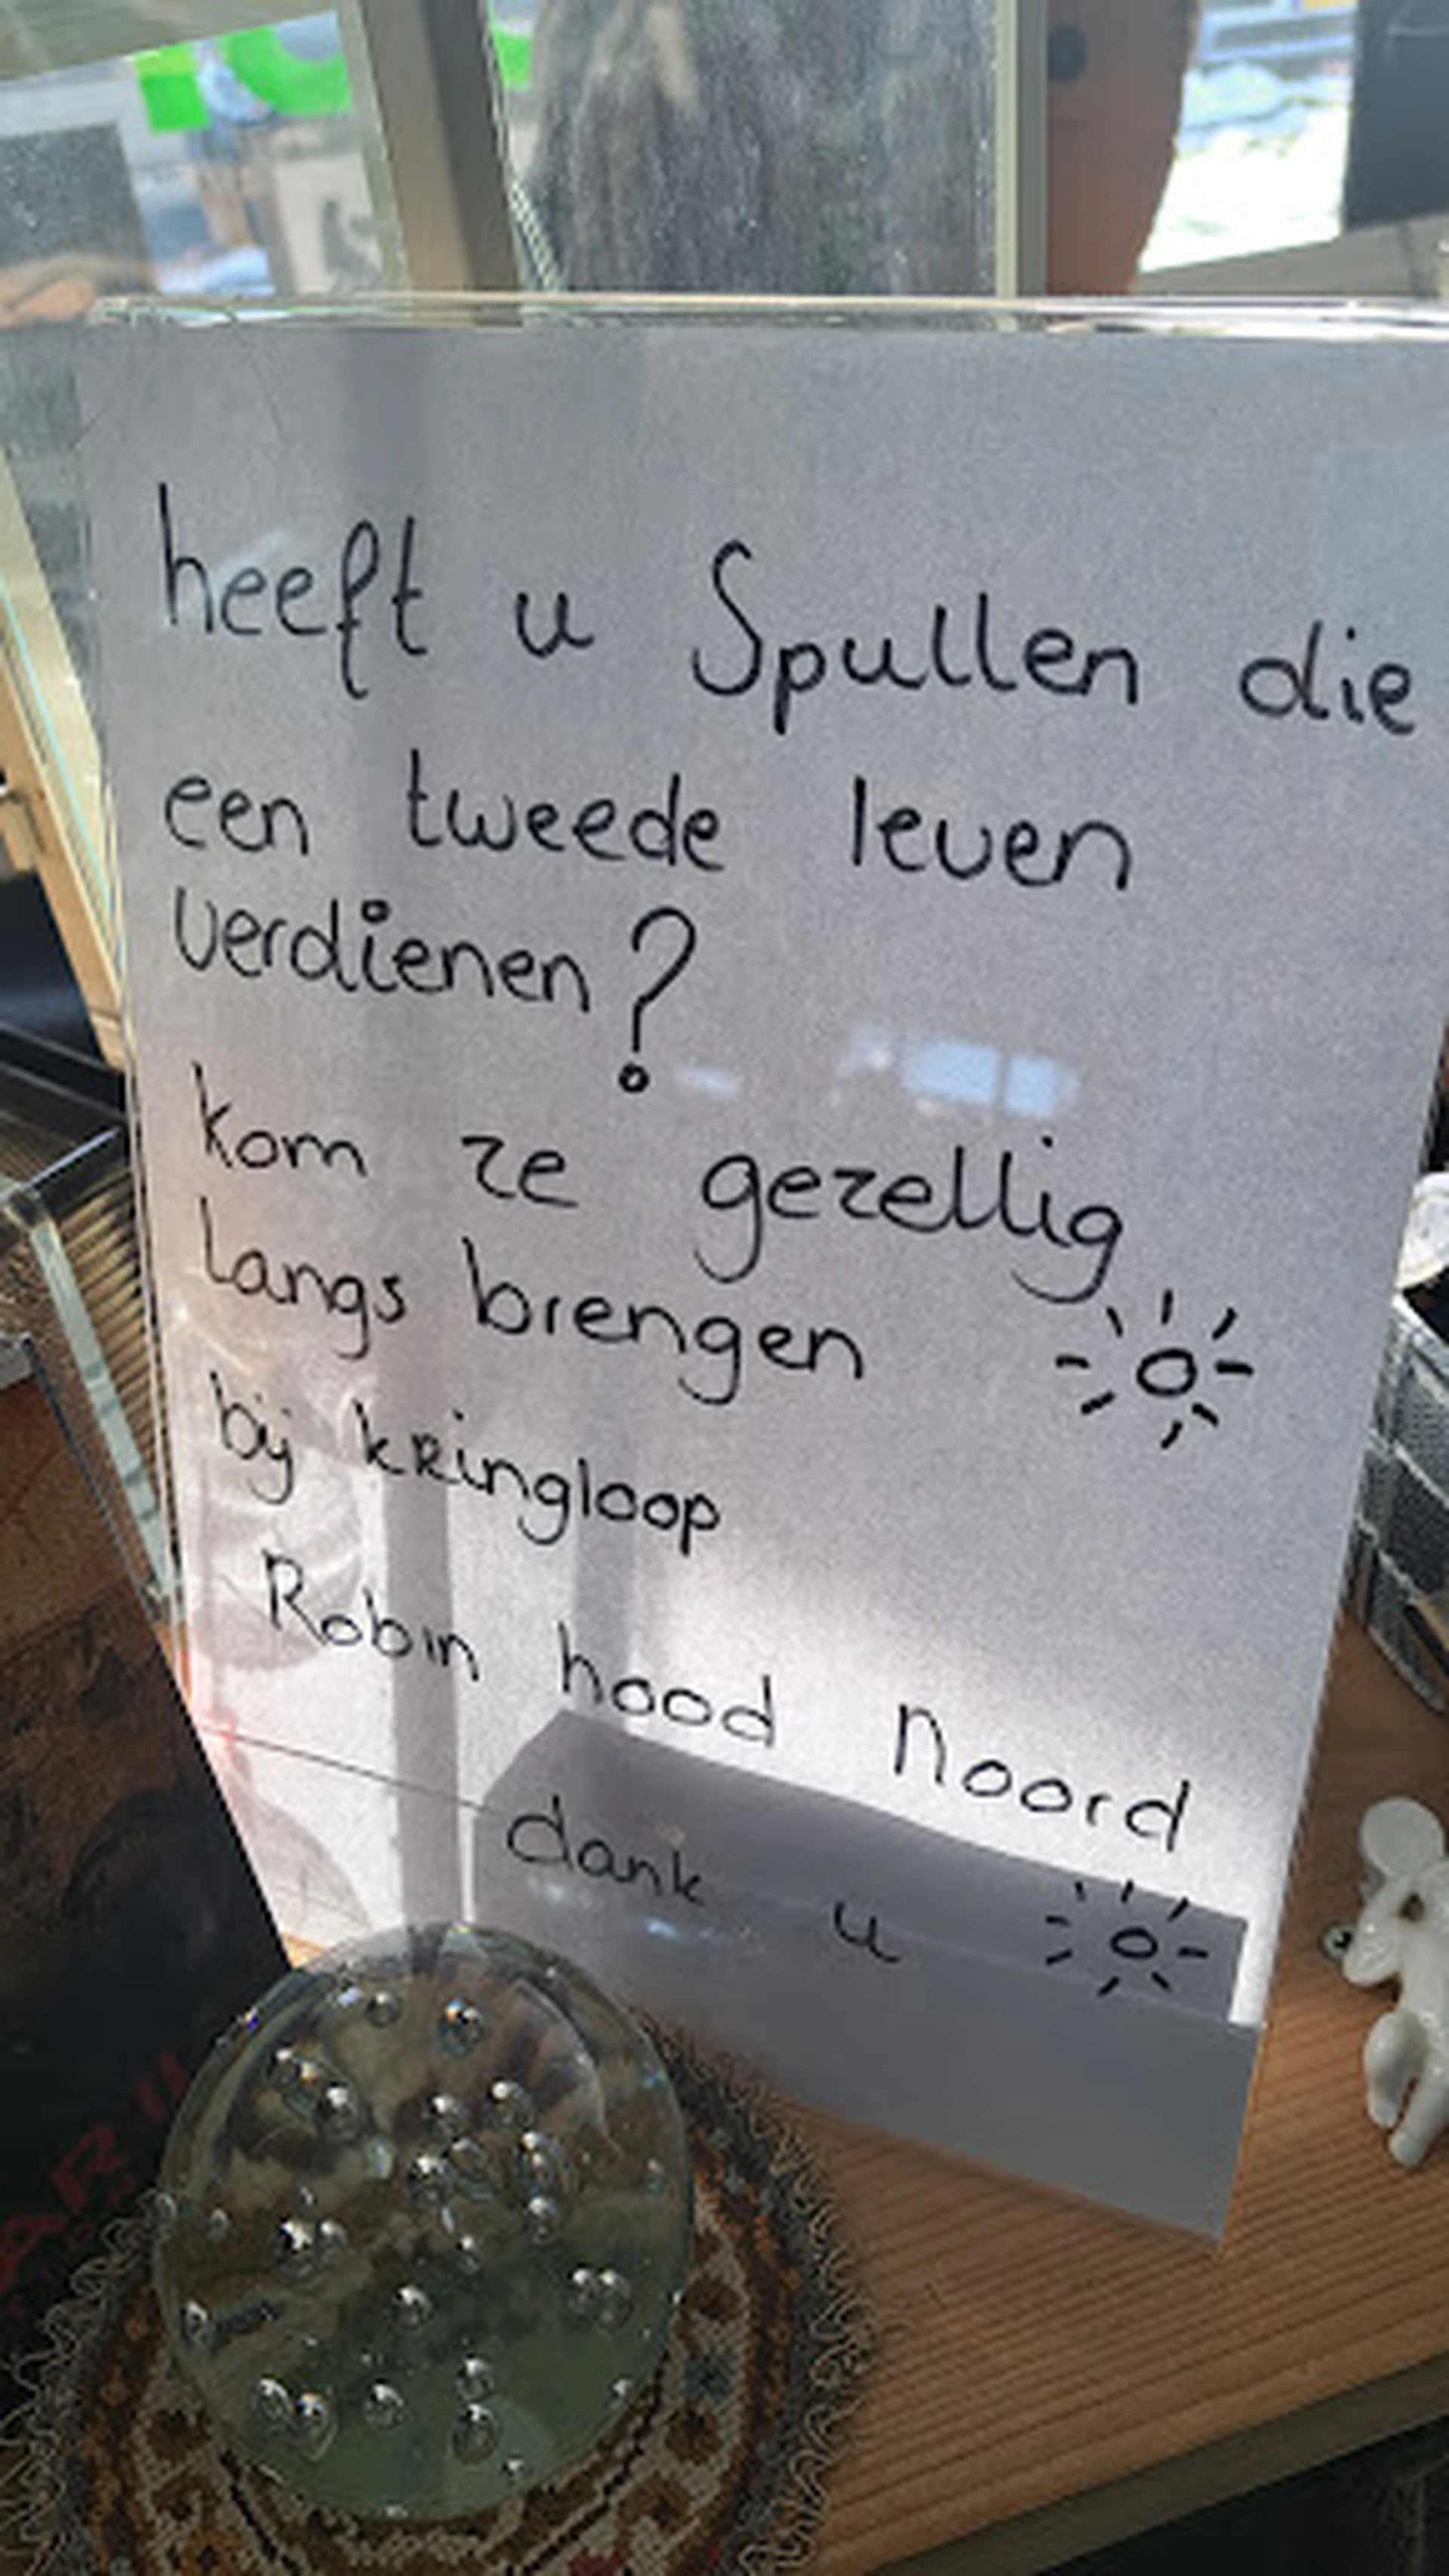 heeft u Spullen die
een tweede leven
verdienen?
kom ze gezellig
langs brengen
bij kringloop
Robin hood Noord
dank u